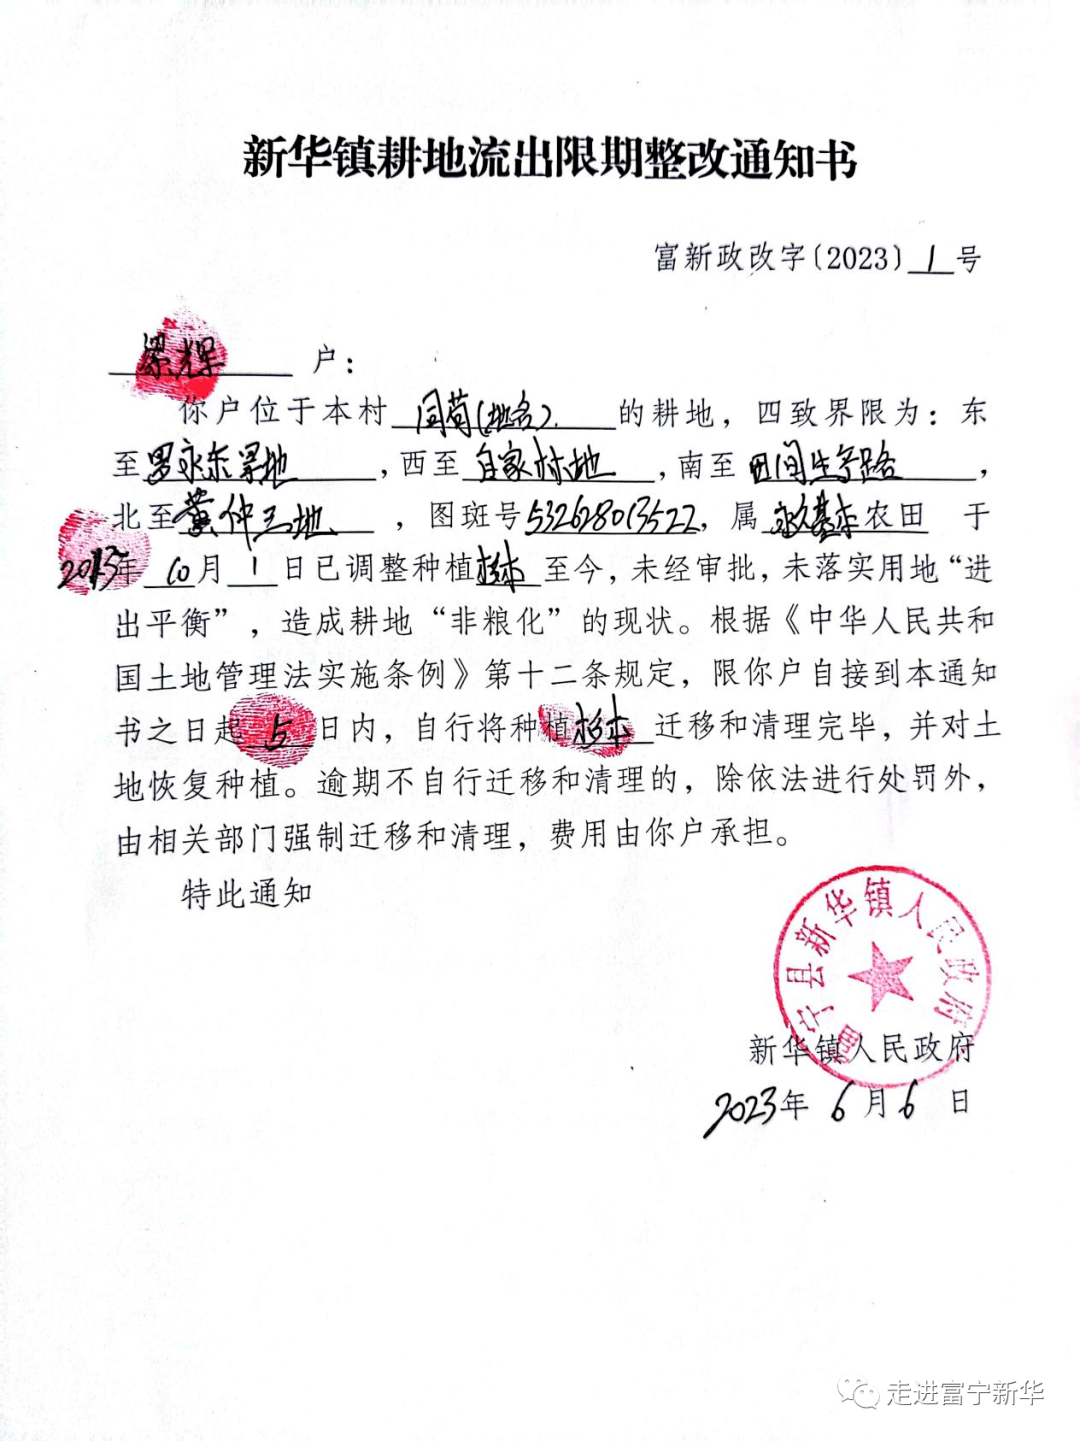 新华镇耕地流出限期整改通知书
富新政改字〔2023〕1号
梁辉 户：
你户位于本村 (地名) 的耕地，四致界限为：东
至罗永东旱地，西至自家林地，南至田间生产路，
北至黄仲三地，图斑号532628013522，属永久基本农田 于
2015年10月1日已调整种植杉木至今，未经审批，未落实用地“进
出平衡”，造成耕地“非粮化”的现状。根据《中华人民共和
国土地管理法实施条例》第十二条规定，限你户自接到本通知
书之日起5日内，自行将种植杉木迁移和清理完毕，并对土
地恢复种植。逾期不自行迁移和清理的，除依法进行处罚外，
由相关部门强制迁移和清理，费用由你户承担。
特此通知
富宁县新华镇人民政府
新华镇人民政府
2023年6月6日
走进富宁新华